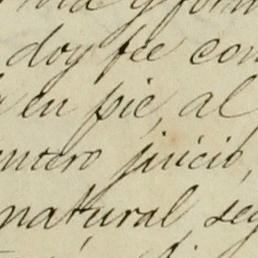 doy fee con
en pie, al
entero juicio,
natural seg